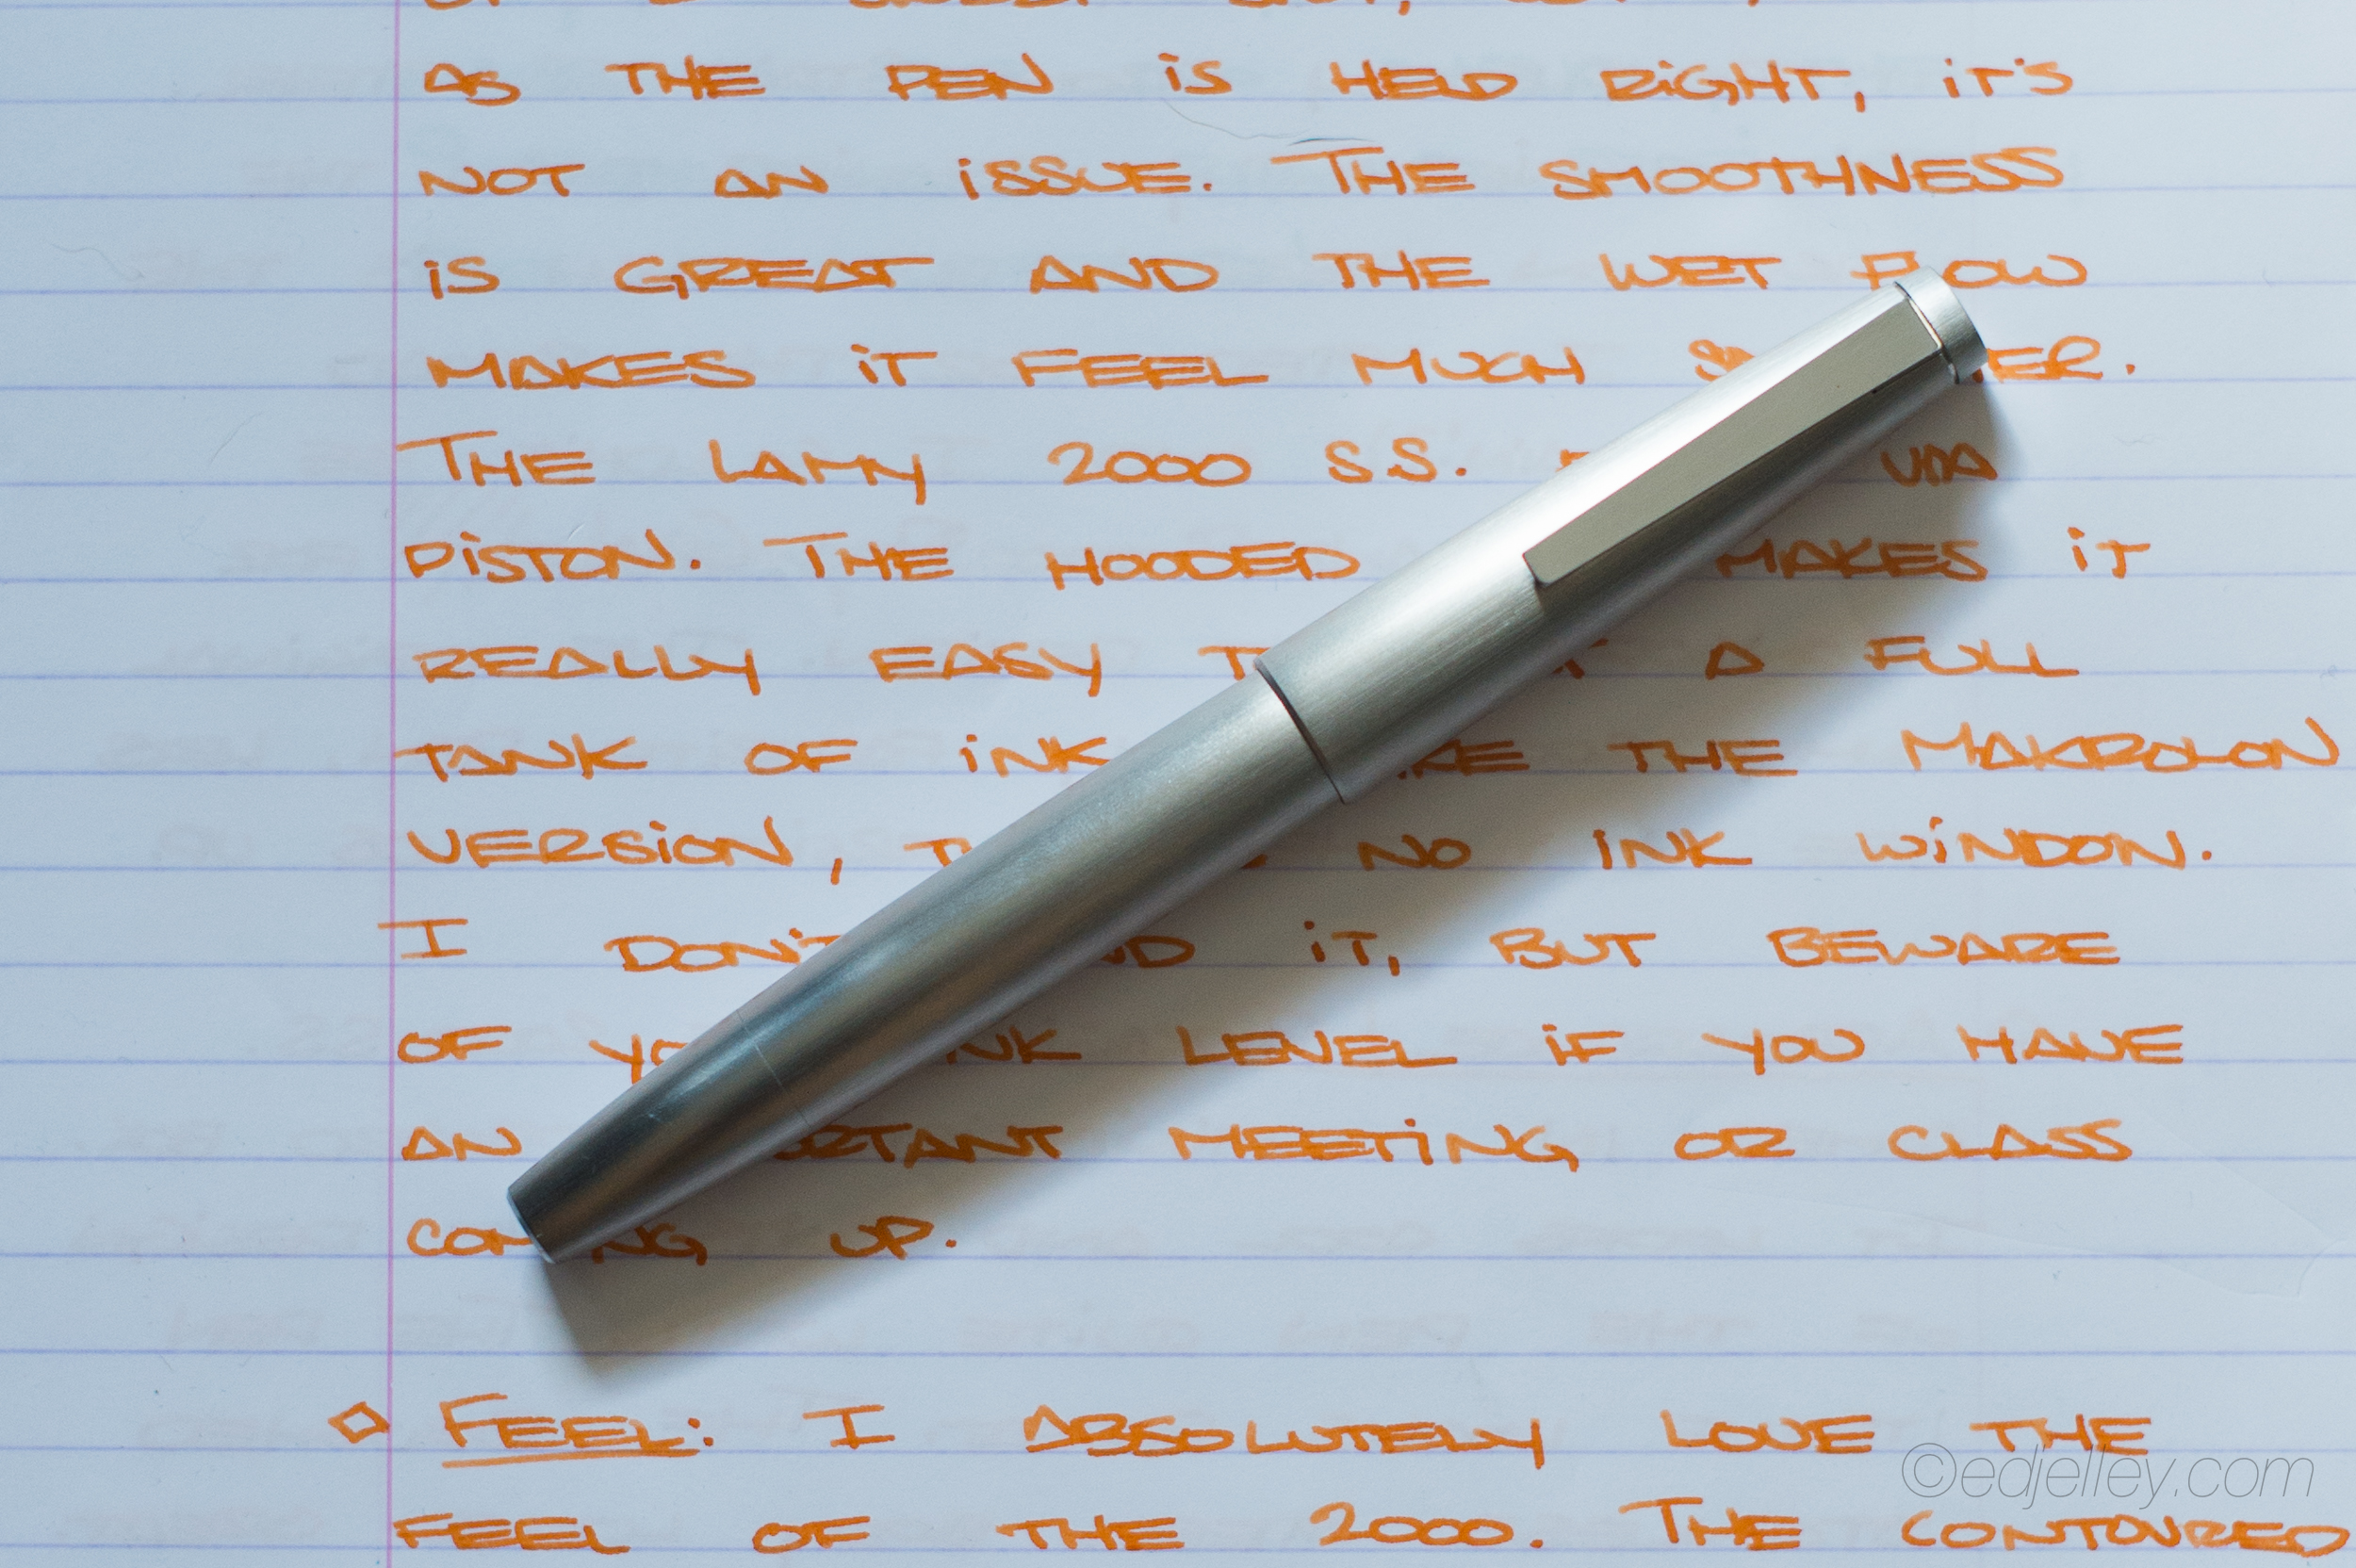 AS THE PEN iS HELD RiGHT, iT'S
NOT AN iSSUE. THE SMOOTHNESS
iS GREAT AND THE WET FLOW
MAKES iT FEEL MUCH
THE LAMY 2000 S.S. VIA
PiSTON. THE HOODED MAKES iT
REALLY EASY A FULL
TANK OF iNK THE MAKROLON
VERSiON, NO INK WiNDOW.
I DON'T iT, BUT BEWARE
OF iNK LEVEL iF YOU HAVE
AN MEETiNG OR CLASS
UP.
◇ FEEL: I ABSOLUTELY LOVE THE
©edjelley.com
FEEL OF THE 2000. THE CONTOURED